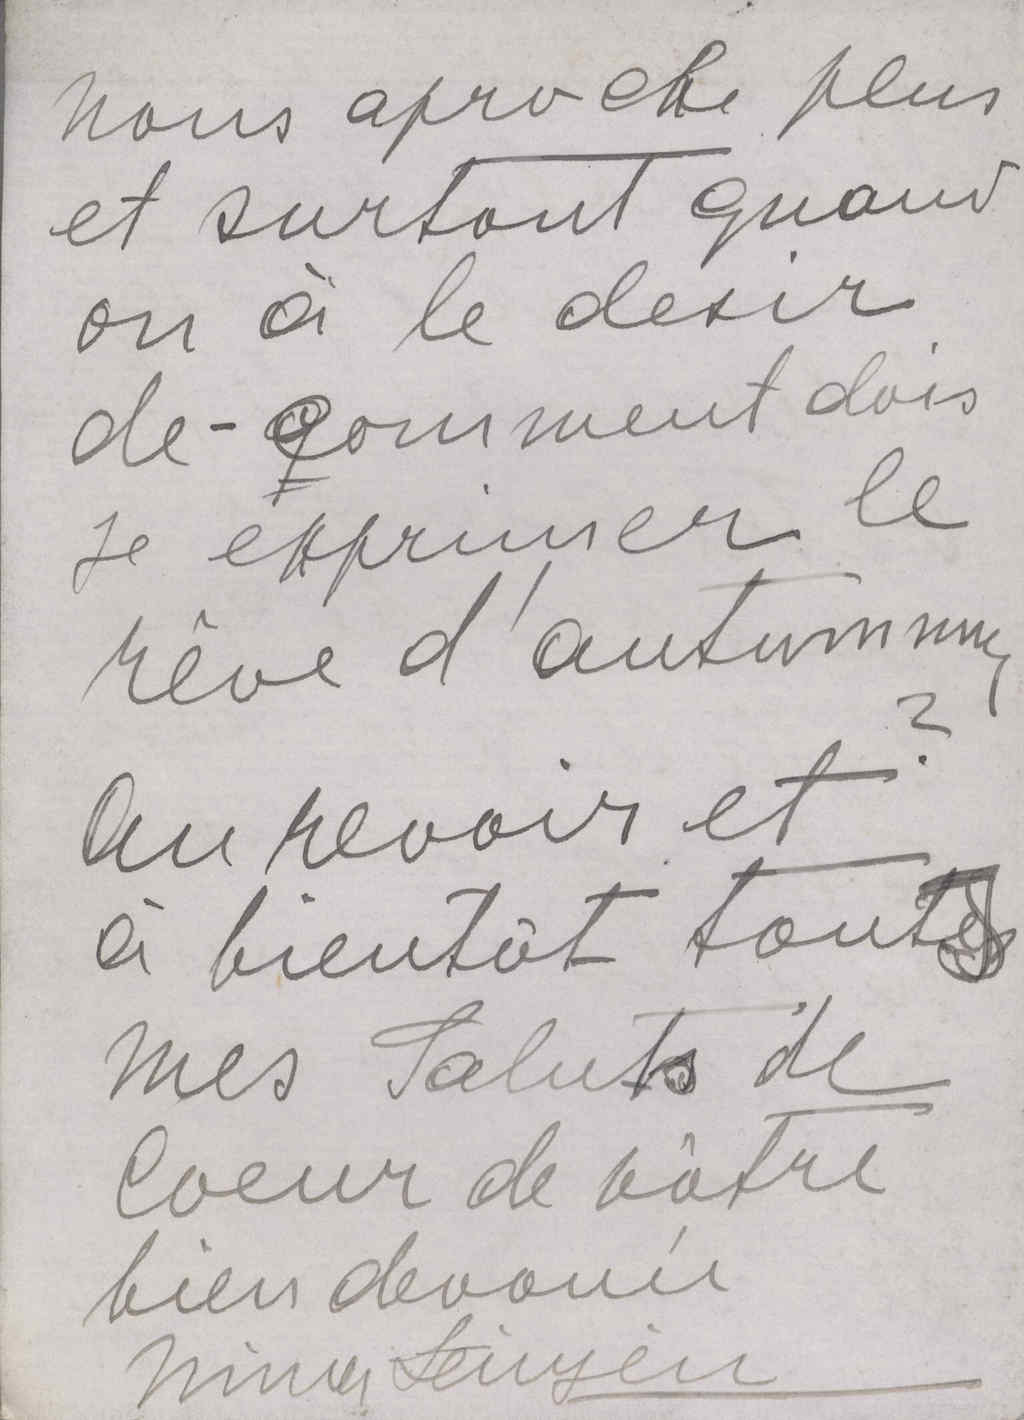 nous aproche plus
et surtout quand
on à le desir
de - comment dois
je exprimer le
rêve d'automne
?
Au revoir et
à bientôt toutes
mes Saluts de
Coeur de vôtre
bien devouée
Nina